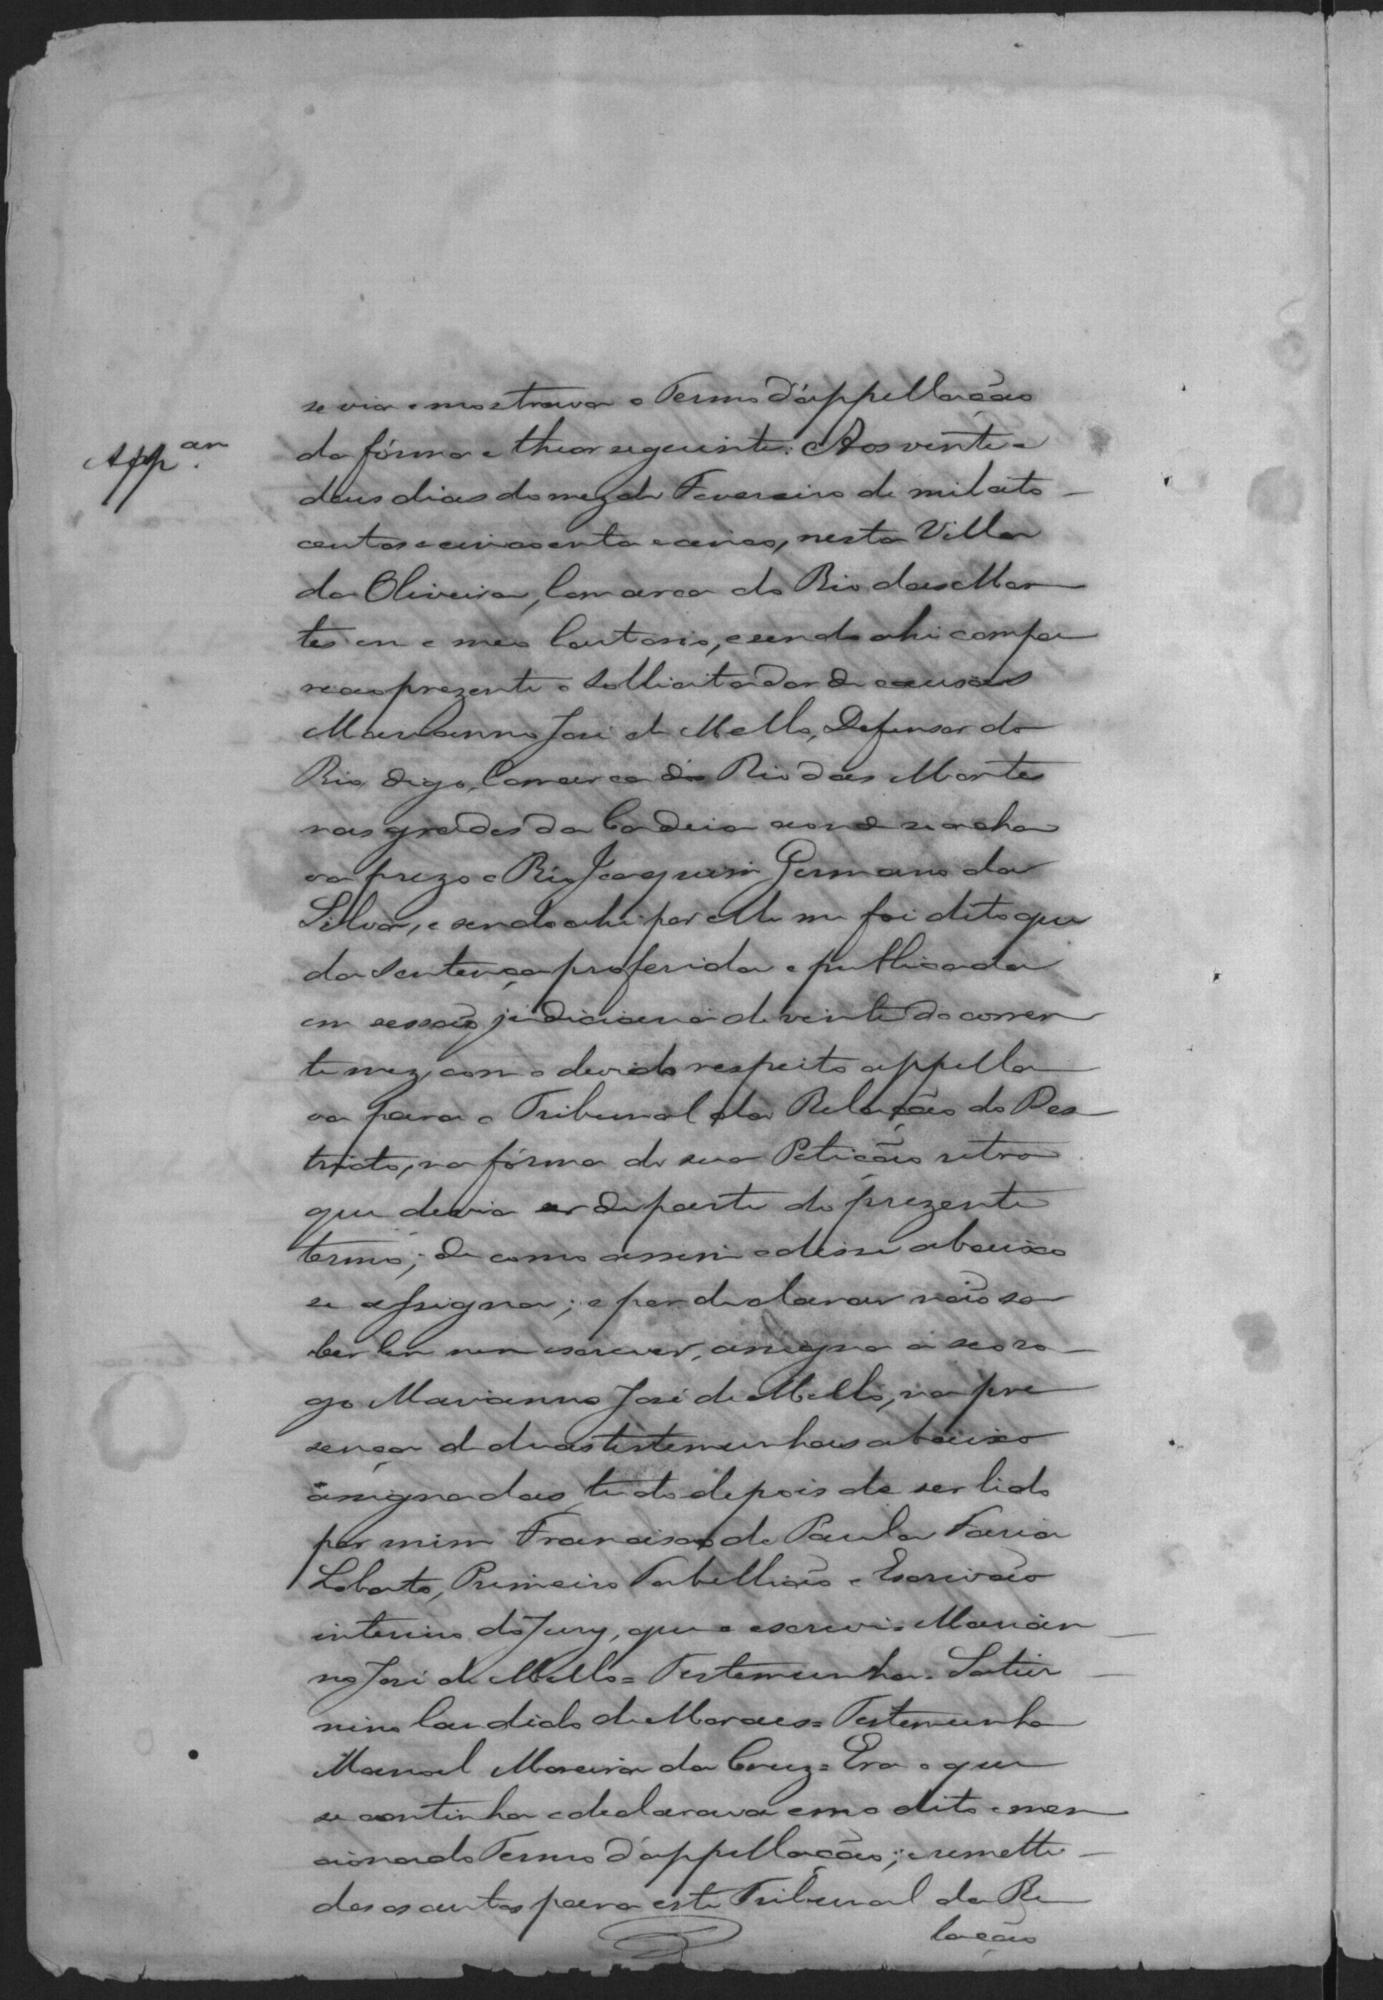 se via e mostrava o Termo d'appellação
App.am
da fórma e theor seguinte: Aos vinte e
deus dias do mez de Fevereiro de mil oito
centos e cincoenta e cinco, nesta Villa
da Oliveira, Comarca do Rio das Mor
tes em o meu Cartorio, e sendo ahi compa
receo prezente o Sollicitador de causas
Marianno José de Mello, Defensor do
Rio digo, Comarca do Rio das Mortes
nas grades da Cadeia aonde se acha
va prezo o Réo Joaquim Germano da
Silva, e sendo ahi por elle me foi dito que
da sentença proferida e publicada
em sessão judiciaria de vinte do corren
te mez com o devido respeito appella
va para o Tribunal da Relação do Des
tricto, na fórma de sua Petição retro
que devia ser de parte do prezente
termo; de como assim o disse abaixo
se assigna; e por declarar não sa
ber ler nem escrever, assigna a seo ro
go Marianno José de Mello, na pre
sença de duas testemunhas abaixo
assignadas, tudo depois de ser lido
por mim Francisco de Paula Faria
Lobato, Primeiro Tabellião e Escrivão
interino do Jury, que o escrevi. Marian
no José de Mello = Testemunha. Satur
nino Candido de Moraes = Testemunha
Manoel Moreira da Cruz = Era o que
se continha e declarava em o dito e men
cionado Termo d'appellação; e remetti
dos os autos para este Tribunal da Re
lação